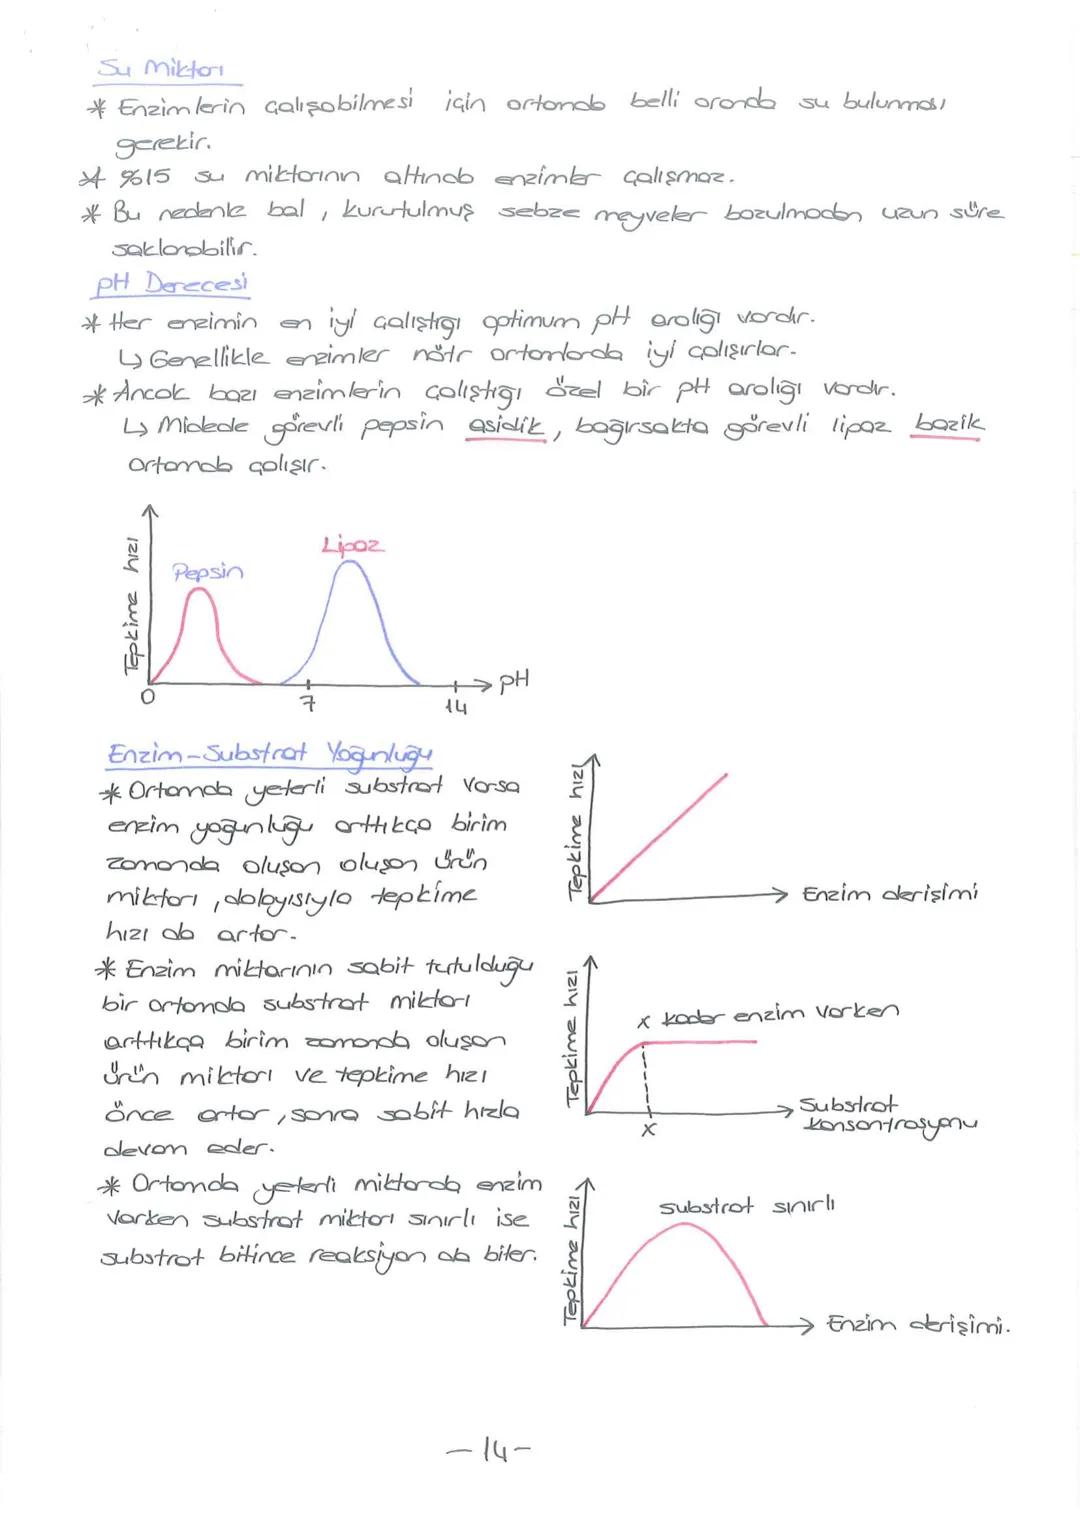 Su Miktarı
* Enzimlerin çalışabilmesi için ortamda belli oranda su bulunması
gerekir.
* %15 su miktarının altında enzimler çalışmaz.
* Bu nedenle bal, kurutulmuş sebze meyveler bozulmadan uzun süre
saklanabilir.
pH Derecesi
* Her enzimin en iyi çalıştığı optimum pH aralığı vardır.
↳ Genellikle enzimler nötr ortamlarda iyi çalışırlar.
* Ancak bazı enzimlerin çalıştığı özel bir pH aralığı vardır.
↳ Midede görevli pepsin asidik, bağırsakta görevli lipaz bazik
ortamda çalışır.
Tepkime hızı
Pepsin
Lipaz
0
7
14
pH
Enzim-Substrat Yoğunluğu
* Ortamda yeterli substrat varsa
enzim yoğunluğu arttıkça birim
zamanda oluşan oluşan ürün
miktarı, dolayısıyla tepkime
hızı da artar.
Tepkime hızı
Enzim derişimi
* Enzim miktarının sabit tutulduğu
bir ortamda substrat miktarı
arttıkça birim zamanda oluşan
ürün miktarı ve tepkime hızı
önce artar, sonra sabit hızla
devam eder.
Tepkime hızı
x kadar enzim varken
x
Substrat
konsantrasyonu
* Ortamda yeterli miktarda enzim
varken substrat miktarı sınırlı ise
substrat bitince reaksiyon da biter.
Tepkime hızı
substrat sınırlı
Enzim derişimi.
-14-